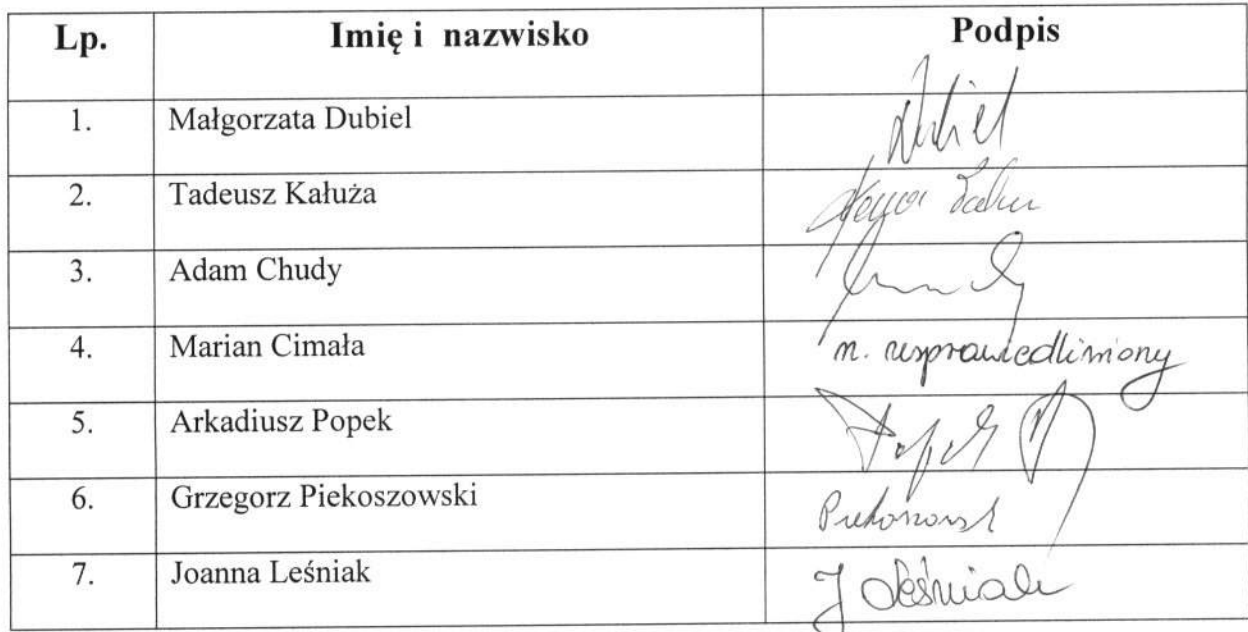 Lp. Imię i nazwisko Podpis
1. Małgorzata Dubiel Dubiel
2. Tadeusz Kałuża
3. Adam Chudy
4. Marian Cimała n. usprawiedliwiony
5. Arkadiusz Popek Popek
6. Grzegorz Piekoszowski
7. Joanna Leśniak J Leśniak